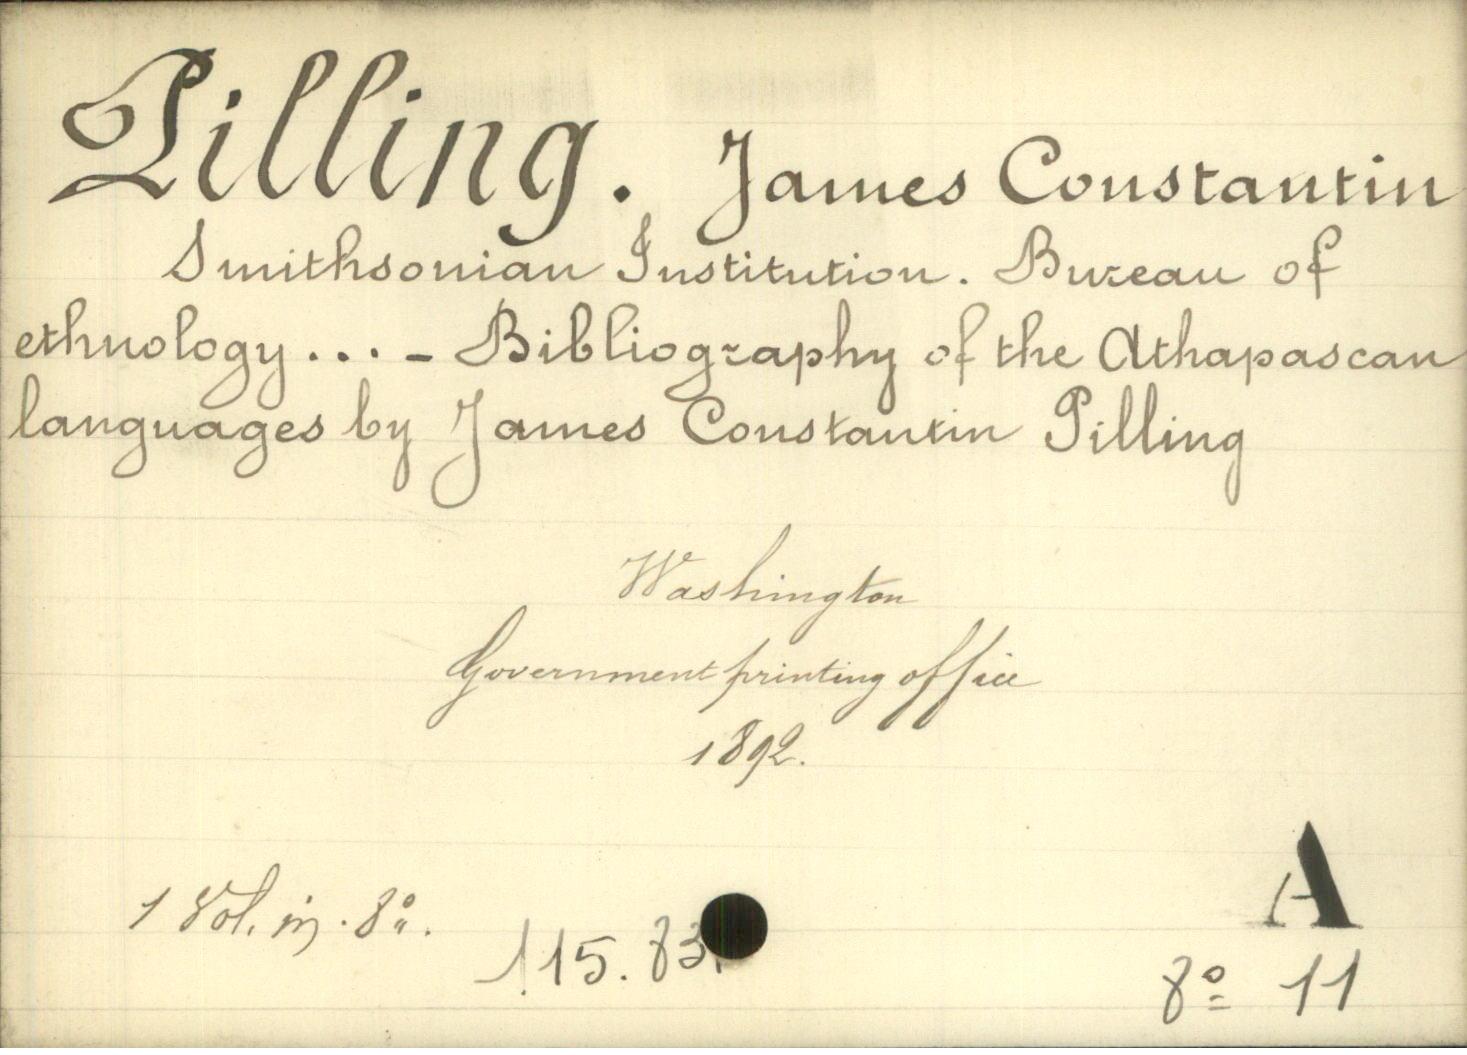 Pilling. James Constantin
Smithsonian Institution. Bureau of
ethnology... - Bibliography of the Athapascan
languages by James Constantin Pilling
Washington
Government printing office
1892.
1 Vol. in. 8º.
115.83
A
8º 11